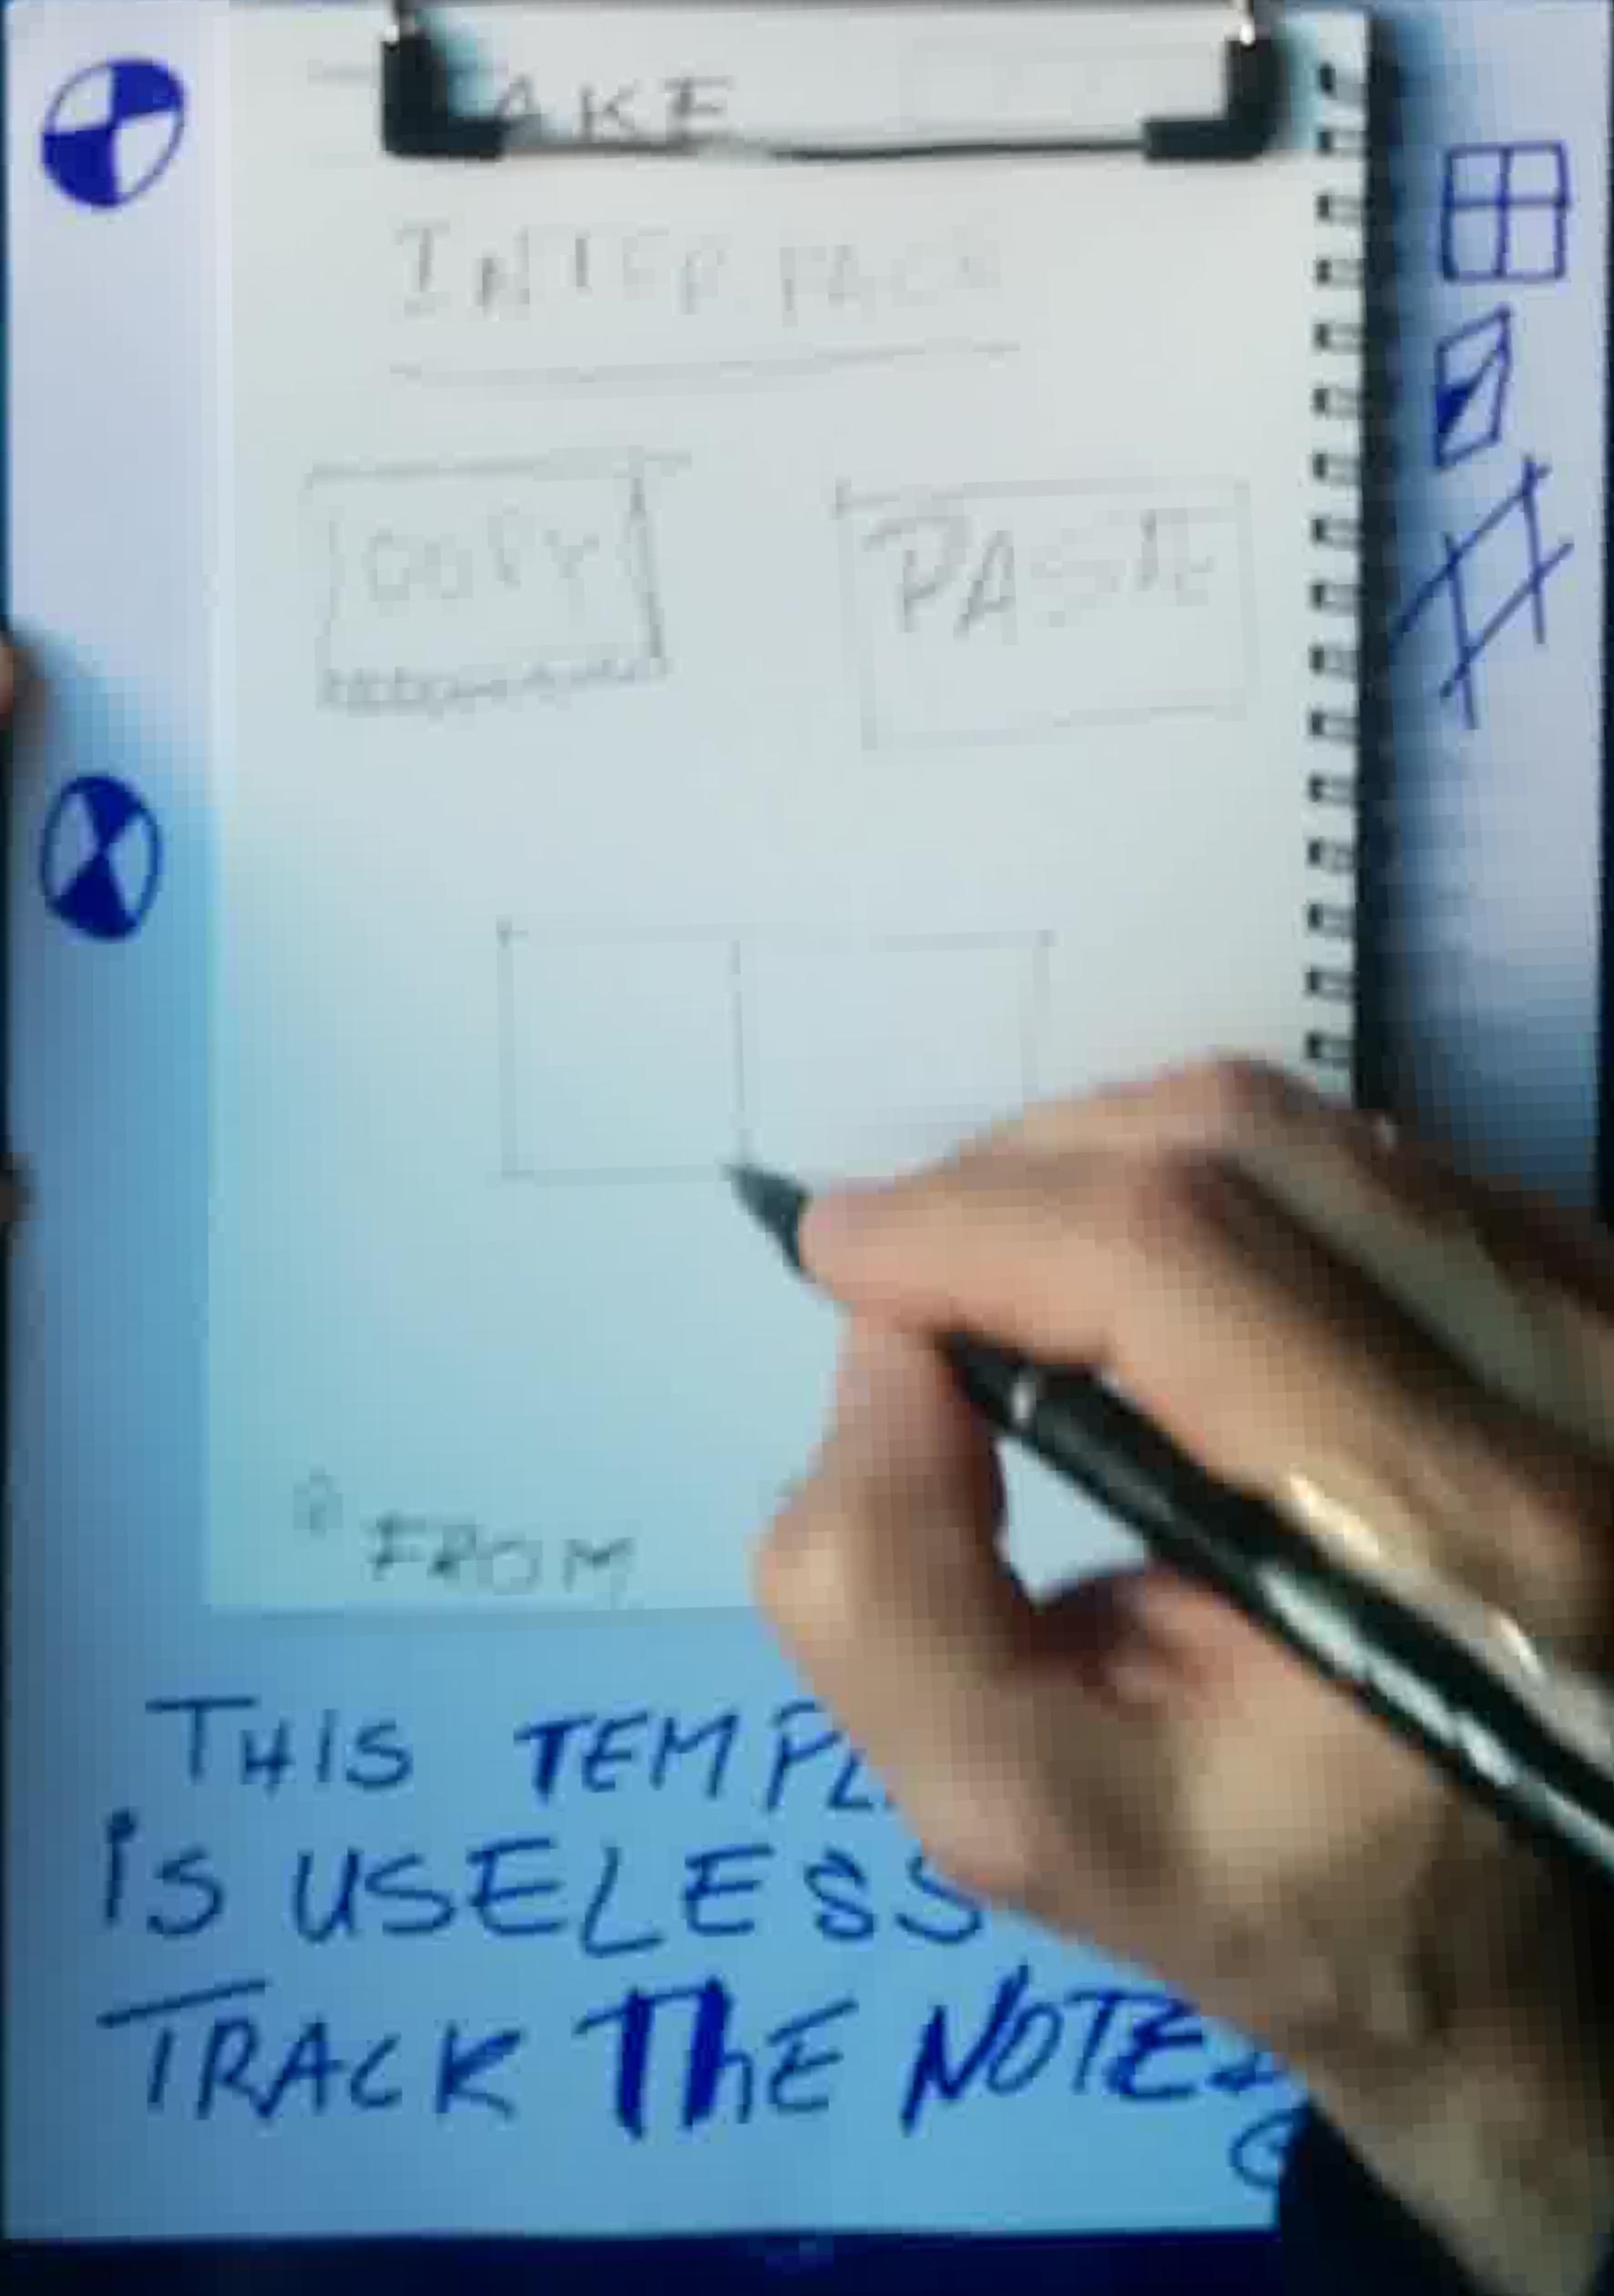 AKE
INTERFACE
COPY PASTE
FROM
THIS TEMPL
iS USELESS
TRACK ThE NOTES